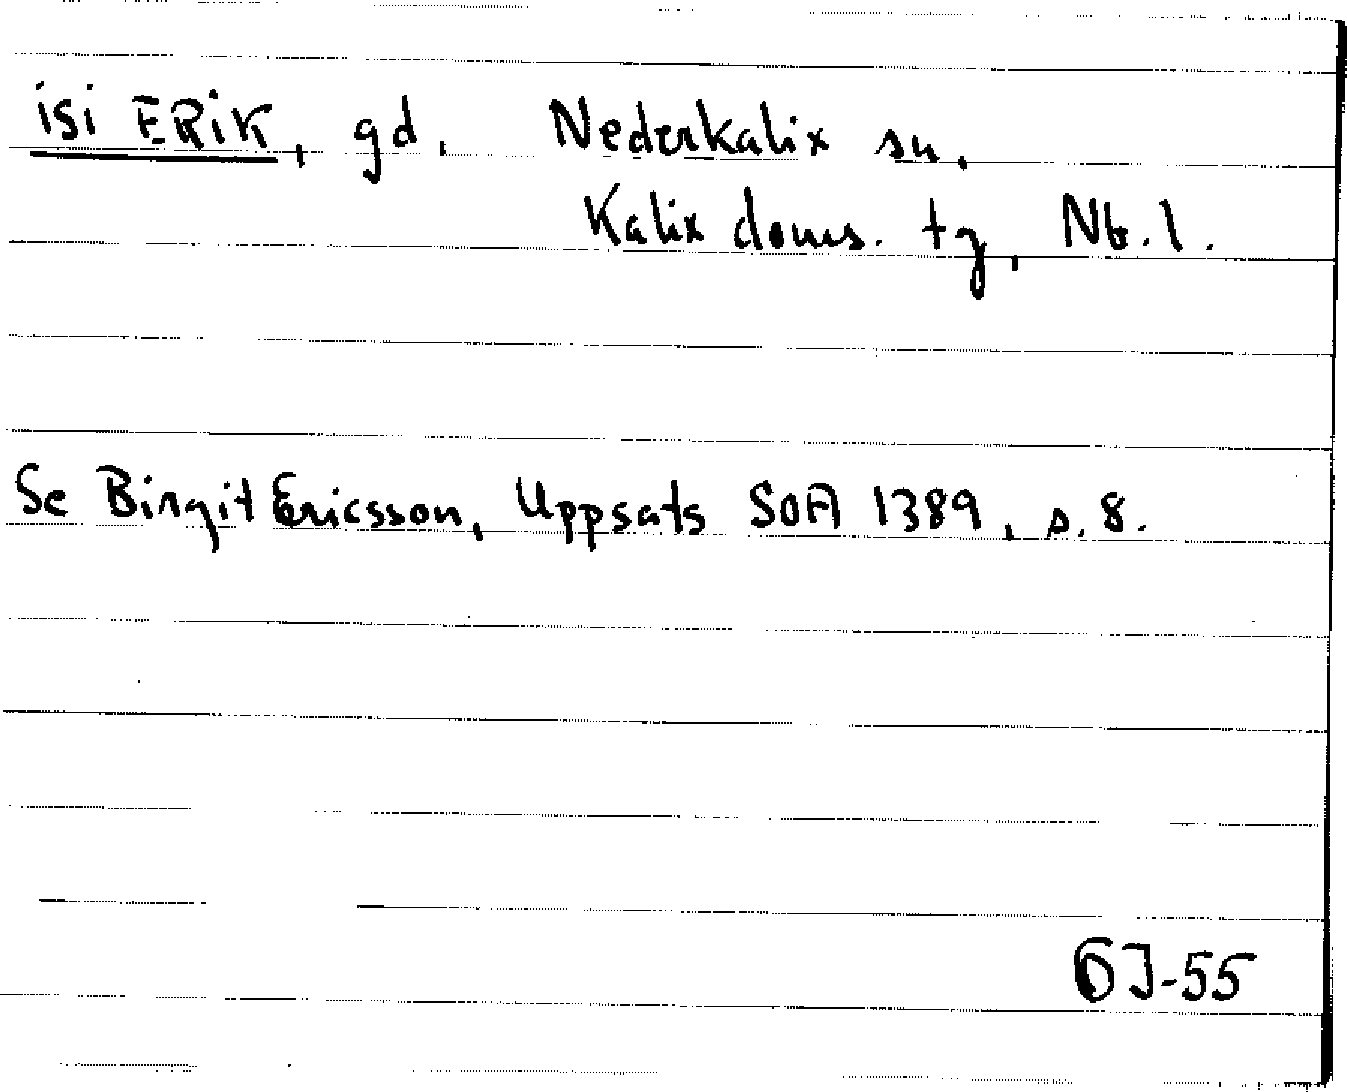 isi ERIK, gd. Nederkalix sn.
Kalix doms. tg, Nb. l.
Se Birgit Ericsson, Uppsats SOFA 1389, s. 8.
6J-55